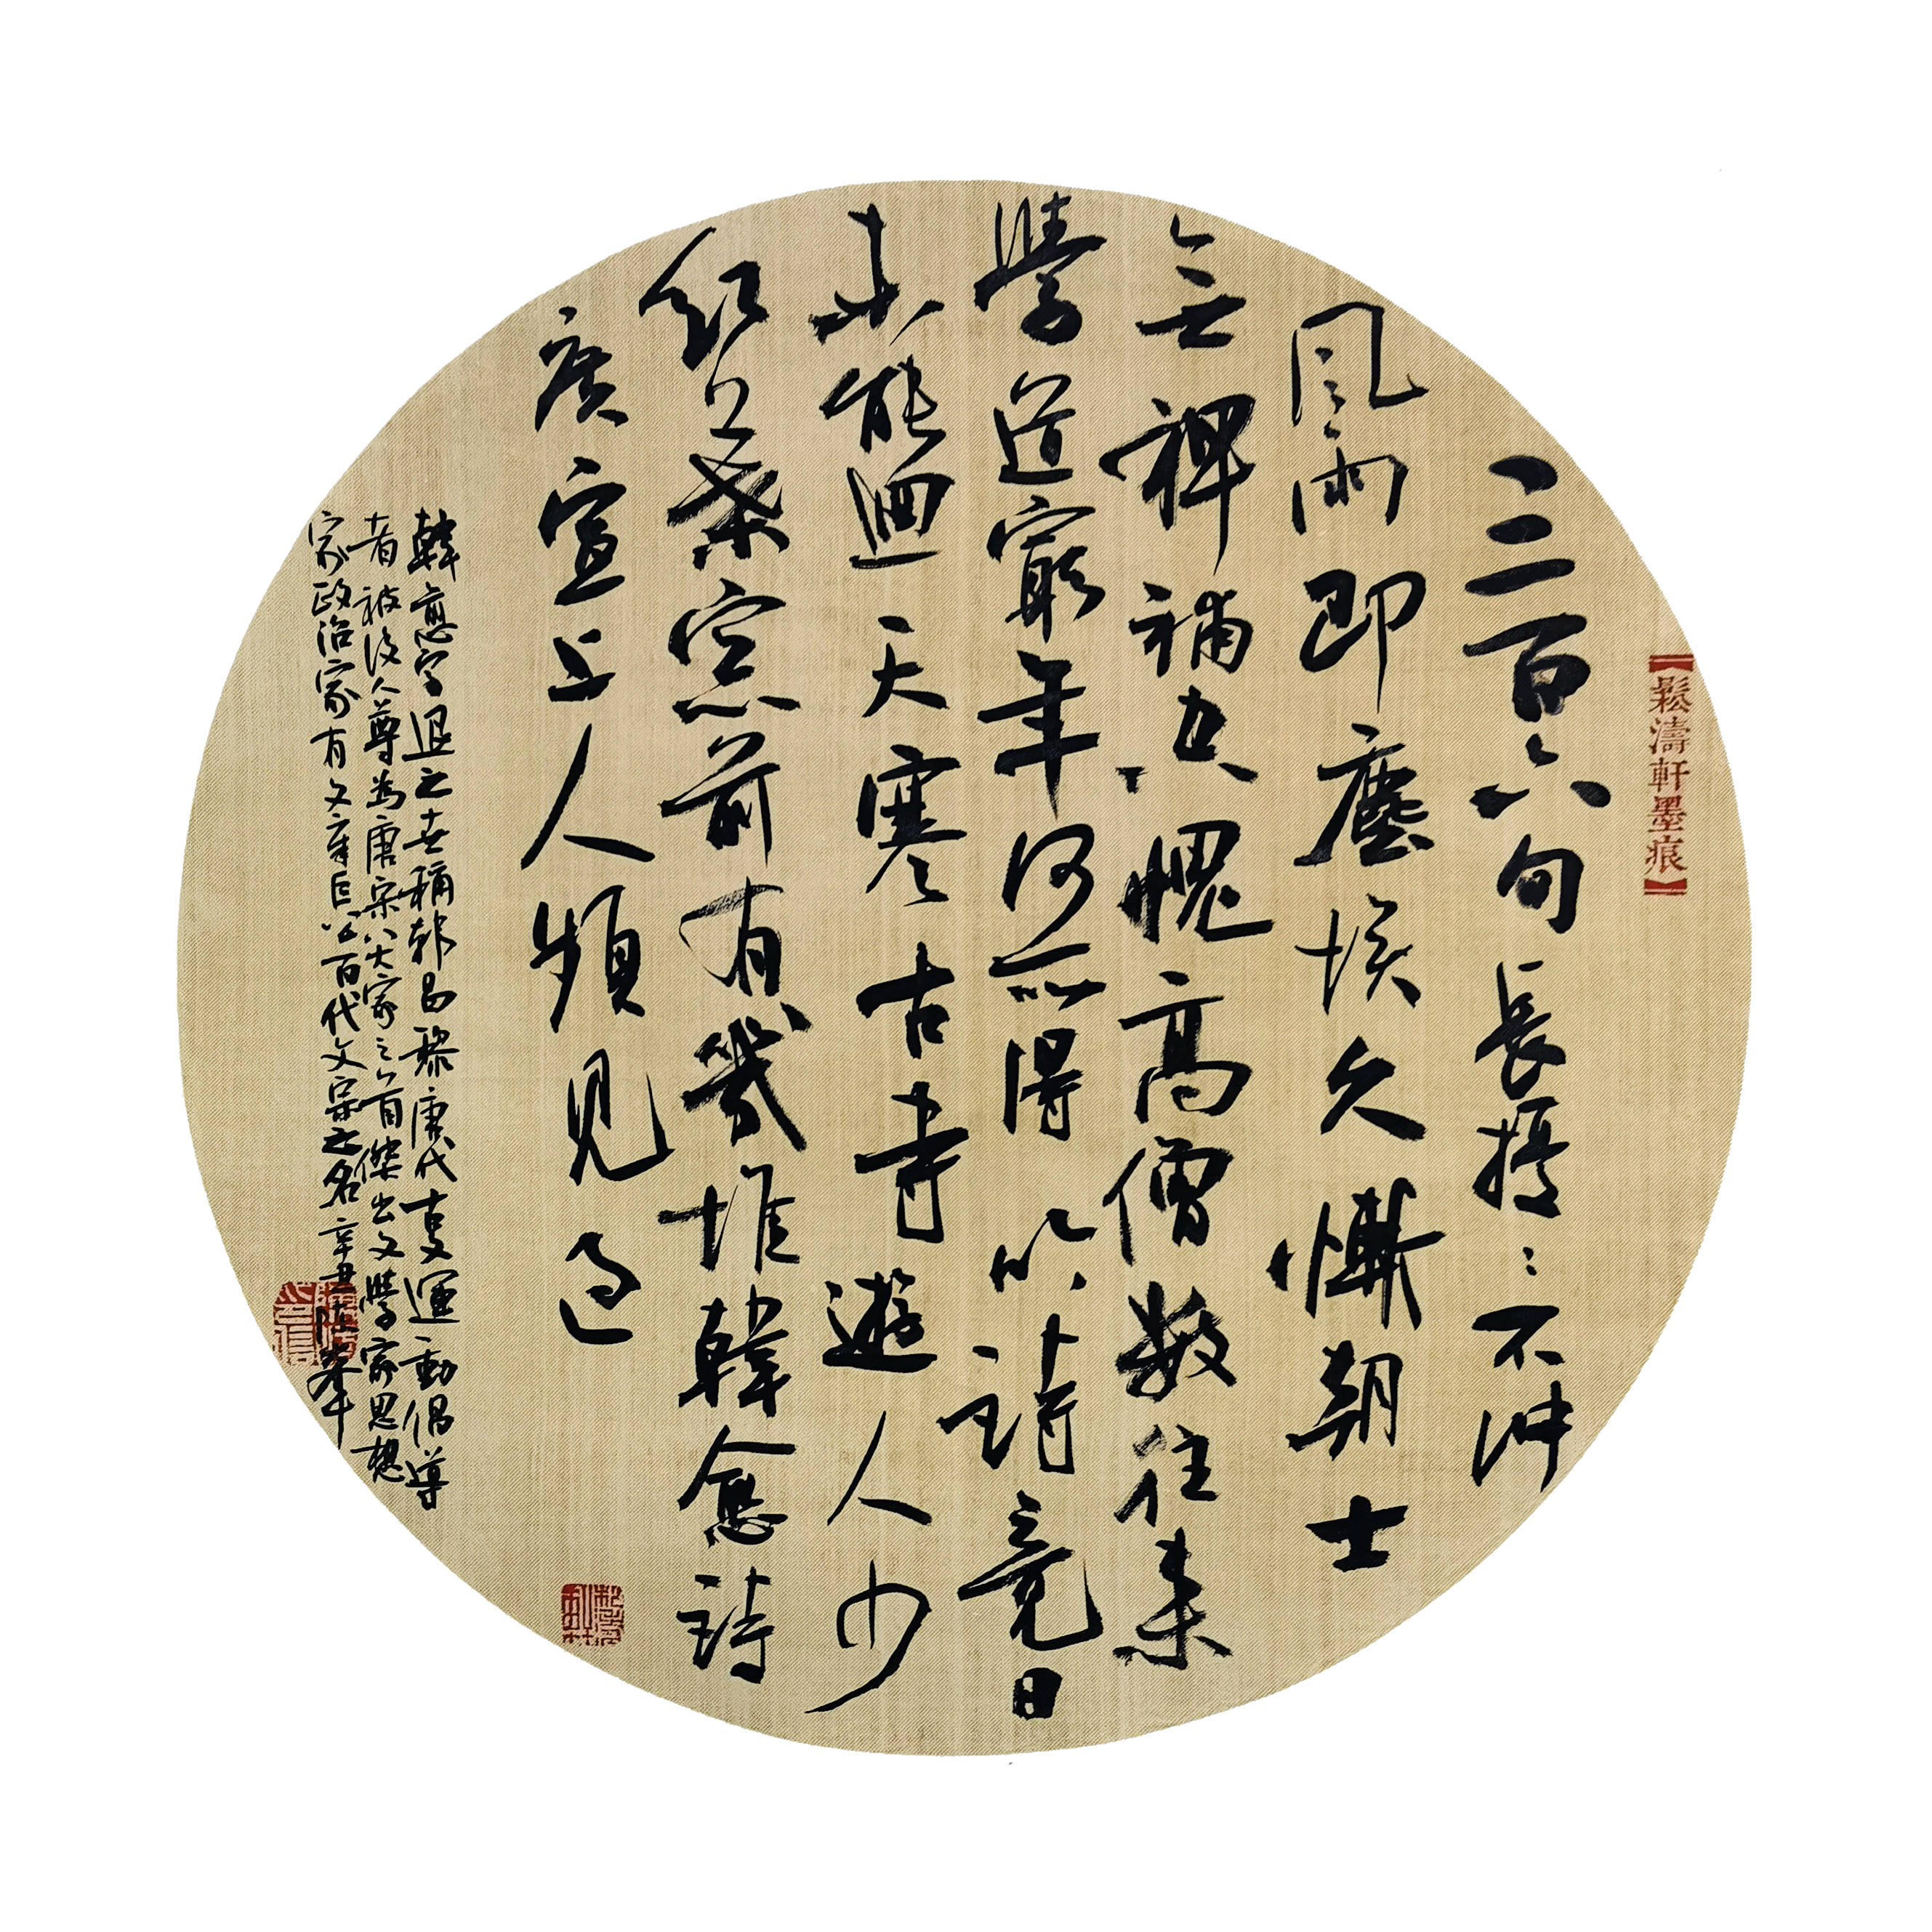 【鬆濤軒墨痕】
三百六旬長擾〻不沖
風雨即塵埃久慚朝士
無裨補空愧高僧數往來
學道窮年何所得吟詩竟日
未能迴天寒古寺遊人少
紅葉窓前有幾堆韓愈詩
廣宣上人頻見過
韓愈字退之世稱韓昌黎唐代古文運動倡導
者被後人尊為唐宋八大家之首傑出文學家思想
家政治家有文章巨公百代文宗之名辛丑